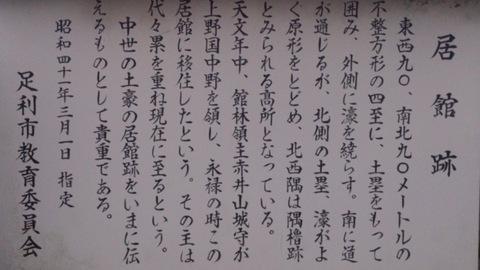 居館跡
東西九〇、南北九〇メートルの
不整方形の四至に、土塁をもって
囲み、外側に濠を繞らす。南に道
が通じるが、北側の土塁、濠がよ
く原形をとどめ、北西隅は隅櫓跡
とみられる高所となっている。
天文年中、館林領主赤井山城守が
上野国中野を領し、永禄の時この
居館に移住したという。その主は
代々累を重ね現在に至るという。
中世の土豪の居館跡をいまに伝
えるものとして貴重である。
昭和四十一年三月一日 指定
足利市教育委員会